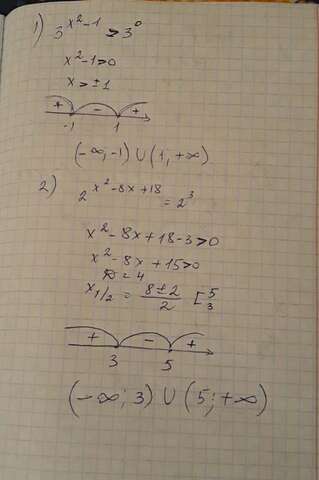 1) 3^{x²-1} ≥ 3⁰
x²-1>0
x > ±1
+ - +
-1 1
(-∞; -1) ∪ (1; +∞)
2) 2^{x²-8x+18} = 2³
x²-8x+18-3>0
x²-8x+15>0
D=4
x_{1/2} = \frac{8±2}{2} [5 3
+ - +
3 5
(-∞; 3) ∪ (5; +∞)